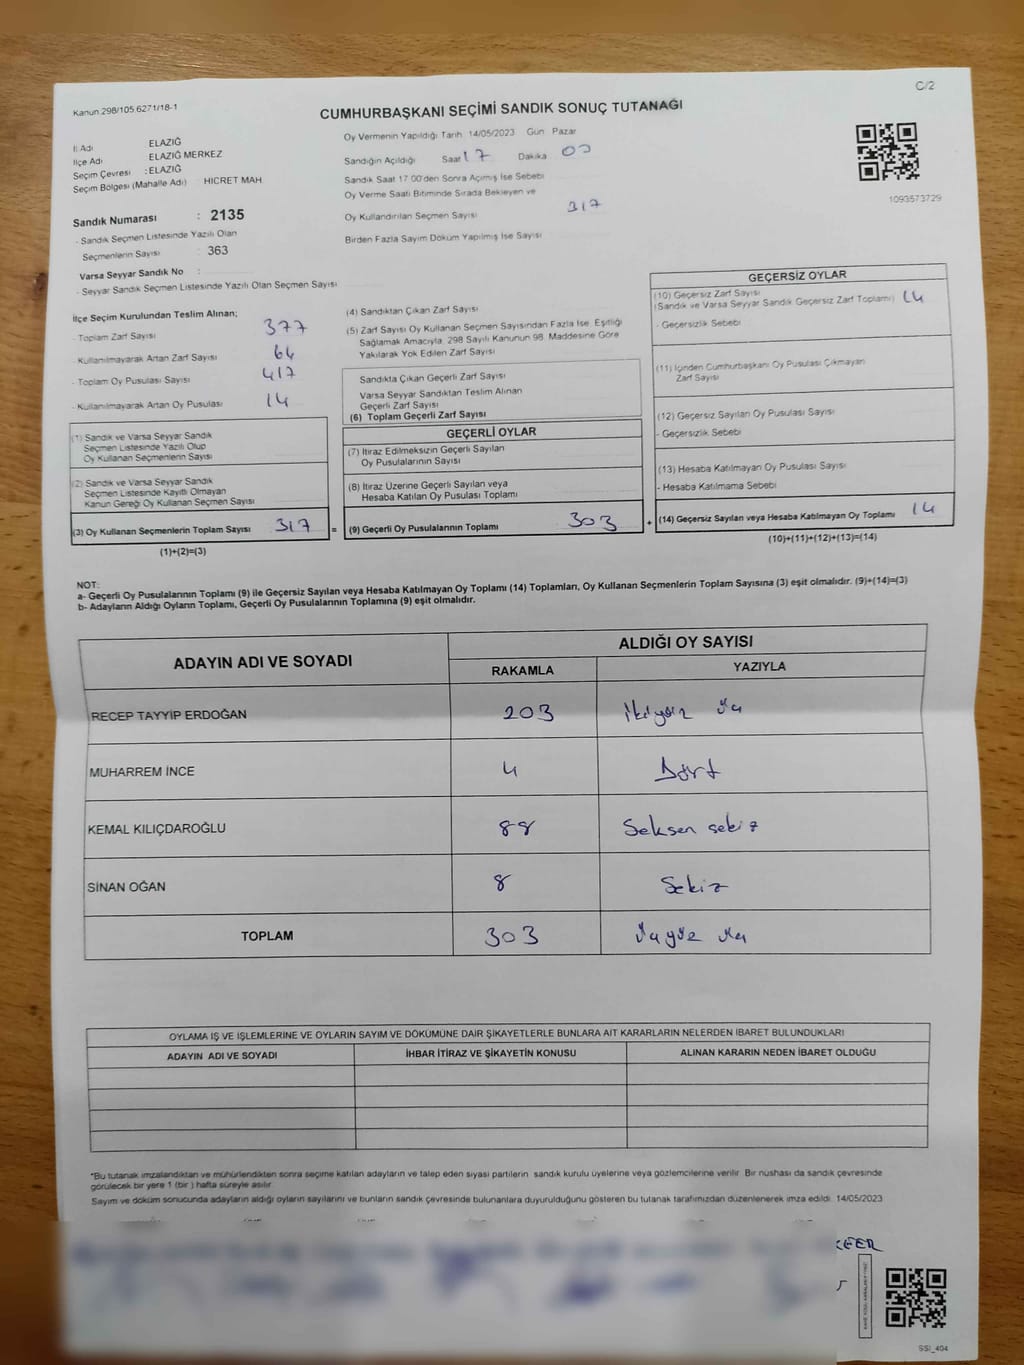 C/2
Kanun 298/105 6271/18-1
CUMHURBAŞKANI SEÇİMİ SANDIK SONUÇ TUTANAĞI
İl Adı ELAZIĞ
İlçe Adı ELAZIĞ MERKEZ
Seçim Çevresi : ELAZIĞ
Seçim Bölgesi (Mahalle Adı) HİCRET MAH.
Sandık Numarası : 2135
- Sandık Seçmen Listesinde Yazılı Olan
Seçmenlerin Sayısı : 363
Varsa Seyyar Sandık No :
- Seyyar Sandık Seçmen Listesinde Yazılı Olan Seçmen Sayısı
Oy Vermenin Yapıldığı Tarih 14/05/2023 Gün Pazar
Sandığın Açıldığı Saat 17 Dakika 00
Sandık Saat 17:00'den Sonra Açımış İse Sebebi
Oy Verme Saati Bitiminde Sırada Bekleyen ve
Oy Kullandırılan Seçmen Sayısı 317
Birden Fazla Sayım Döküm Yapılmış İse Sayısı
1093573729
İlçe Seçim Kurulundan Teslim Alınan;
- Toplam Zarf Sayısı 377
- Kullanılmayarak Artan Zarf Sayısı 64
- Toplam Oy Pusulası Sayısı 417
- Kullanılmayarak Artan Oy Pusulası 14
(1) Sandık ve Varsa Seyyar Sandık
Seçmen Listesinde Yazılı Olup
Oy Kullanan Seçmenlerin Sayısı
(2) Sandık ve Varsa Seyyar Sandık
Seçmen Listesinde Kayıtlı Olmayan
Kanun Gereği Oy Kullanan Seçmen Sayısı
(3) Oy Kullanan Seçmenlerin Toplam Sayısı 317 =
(1)+(2)=(3)
(4) Sandıktan Çıkan Zarf Sayısı
(5) Zarf Sayısı Oy Kullanan Seçmen Sayısından Fazla İse, Eşitliği
Sağlamak Amacıyla, 298 Sayılı Kanunun 98. Maddesine Göre
Yakılarak Yok Edilen Zarf Sayısı
Sandıkta Çıkan Geçerli Zarf Sayısı
Varsa Seyyar Sandıktan Teslim Alınan
Geçerli Zarf Sayısı
(6) Toplam Geçerli Zarf Sayısı
GEÇERLİ OYLAR
(7) İtiraz Edilmeksizin Geçerli Sayılan
Oy Pusulalarının Sayısı
(8) İtiraz Üzerine Geçerli Sayılan veya
Hesaba Katılan Oy Pusulası Toplamı
(9) Geçerli Oy Pusulalarının Toplamı 303 +
GEÇERSİZ OYLAR
(10) Geçersiz Zarf Sayısı
(Sandık ve Varsa Seyyar Sandık Geçersiz Zarf Toplamı) 14
- Geçersizlik Sebebi
(11) İçinden Cumhurbaşkanı Oy Pusulası Çıkmayan
Zarf Sayısı
(12) Geçersiz Sayılan Oy Pusulası Sayısı
- Geçersizlik Sebebi
(13) Hesaba Katılmayan Oy Pusulası Sayısı
- Hesaba Katılmama Sebebi
(14) Geçersiz Sayılan veya Hesaba Katılmayan Oy Toplamı 14
(10)+(11)+(12)+(13)=(14)
NOT:
a- Geçerli Oy Pusulalarının Toplamı (9) ile Geçersiz Sayılan veya Hesaba Katılmayan Oy Toplamı (14) Toplamları, Oy Kullanan Seçmenlerin Toplam Sayısına (3) eşit olmalıdır. (9)+(14)=(3)
b- Adayların Aldığı Oyların Toplamı, Geçerli Oy Pusulalarının Toplamına (9) eşit olmalıdır.
ADAYIN ADI VE SOYADI ALDIĞI OY SAYISI
RAKAMLA YAZIYLA
RECEP TAYYİP ERDOĞAN 203 İkiyüz üç
MUHARREM İNCE 4 Dört
KEMAL KILIÇDAROĞLU 88 Seksen sekiz
SİNAN OĞAN 8 Sekiz
TOPLAM 303 üçyüz üç
OYLAMA İŞ VE İŞLEMLERİNE VE OYLARIN SAYIM VE DÖKÜMÜNE DAİR ŞİKAYETLERLE BUNLARA AİT KARARLARIN NELERDEN İBARET BULUNDUKLARI
ADAYIN ADI VE SOYADI İHBAR İTİRAZ VE ŞİKAYETİN KONUSU ALINAN KARARIN NEDEN İBARET OLDUĞU
*Bu tutanak imzalandıktan ve mühürlendikten sonra seçime katılan adayların ve talep eden siyasi partilerin sandık kurulu üyelerine veya gözlemcilerine verilir. Bir nüshası da sandık çevresinde
görülecek bir yere 1 (bir) hafta süreyle asılır.
Sayım ve döküm sonucunda adayların aldığı oyların sayılarını ve bunların sandık çevresinde bulunanlara duyurulduğunu gösteren bu tutanak tarafımızdan düzenlenerek imza edildi. 14/05/2023
SSI_404